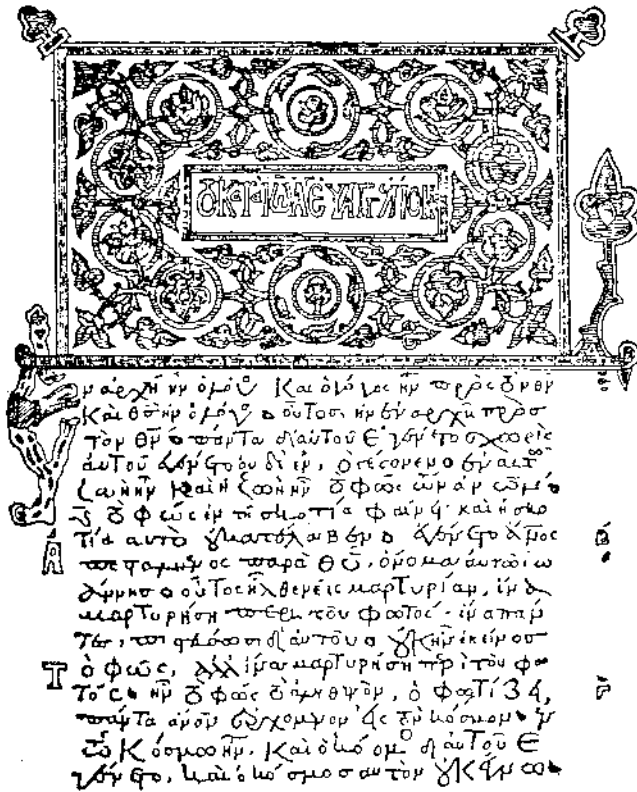 τὸ κατὰ ἰωά εὐαγγέλιον
ν ἀρχῆ ἦν ὁ λόγος καὶ ὁ λόγος ἦν πρὸς τὸν θν
καὶ θς ἦν ὁ λόγος οὗτοσ ἦν ἐν ἀρχῆ πρὸσ
τὸν θν πάντα δι αὐτοῦ ἐγένετο χωρὶς
αὐτοῦ ἐγένετο οὐδὲ ἕν, ὃ γέγονεν ἐν αὐτῶ
ζωὴ ἦν καὶ ἡ ζωὴ ἦν τὸ φῶς τῶν ἀνων
τὸ φῶς ἐν τῆ σκοτία φαίνει· καὶ ἡ σκο
τία αὐτὸ οὐ κατέλαβεν ἐγένετο ἄνος
ἀπεσταλμένος παρὰ θυ, ὄνομα αὐτῶ ἰω
άννησ οὗτος ἦλθεν εἰς μαρτυρίαν, ἵνα
μαρτυρήση περὶ τοῦ φωτός· ἵνα πάν
τες, πιστεύσωσι δι αὐτοῦ οὐκ ἦν ἐκεῖνοσ
Τὸ φῶς, ἀλλ ἵνα μαρτυρήση περὶ τοῦ φω
τός ἦν τὸ φῶς τὸ ἀληθινὸν, ὃ φωτίζει,
πάντα ἄνον ἐρχόμενον εἰς τὸν κόσμον ἐν
τῶ κόσμω ἦν, καὶ ὁ κόσμος δι αὐτοῦ ἐ
γένετο, καὶ ὁ κόσμοσ αὐτὸν οὐκ ἔγνω